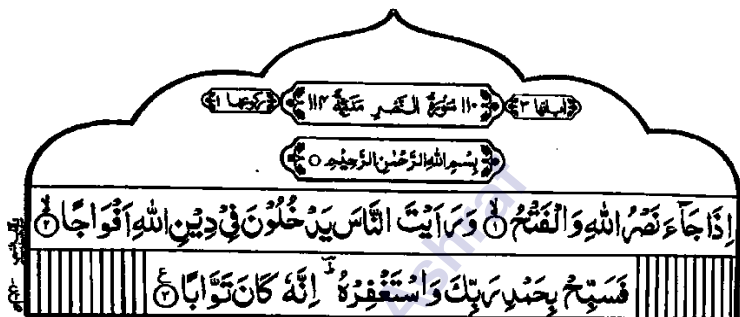 اٰیاتها ٣ ١١٠ سُوْرَةُ النَّصْرِ مَدَنِيَّةٌ ١١٤ رکوعها ١
بِسْمِ اللهِ الرَّحْمٰنِ الرَّحِيْمِ ○
اِذَا جَآءَ نَصْرُ اللهِ وَالْفَتْحُ ۙ ١ وَرَاَيْتَ النَّاسَ يَدْخُلُوْنَ فِيْ دِيْنِ اللهِ اَفْوَاجًا ۙ ٢
فَسَبِّحْ بِحَمْدِ رَبِّكَ وَاسْتَغْفِرْهُ ؕ اِنَّهٗ كَانَ تَوَّابًا ٣ ع
Ashrai